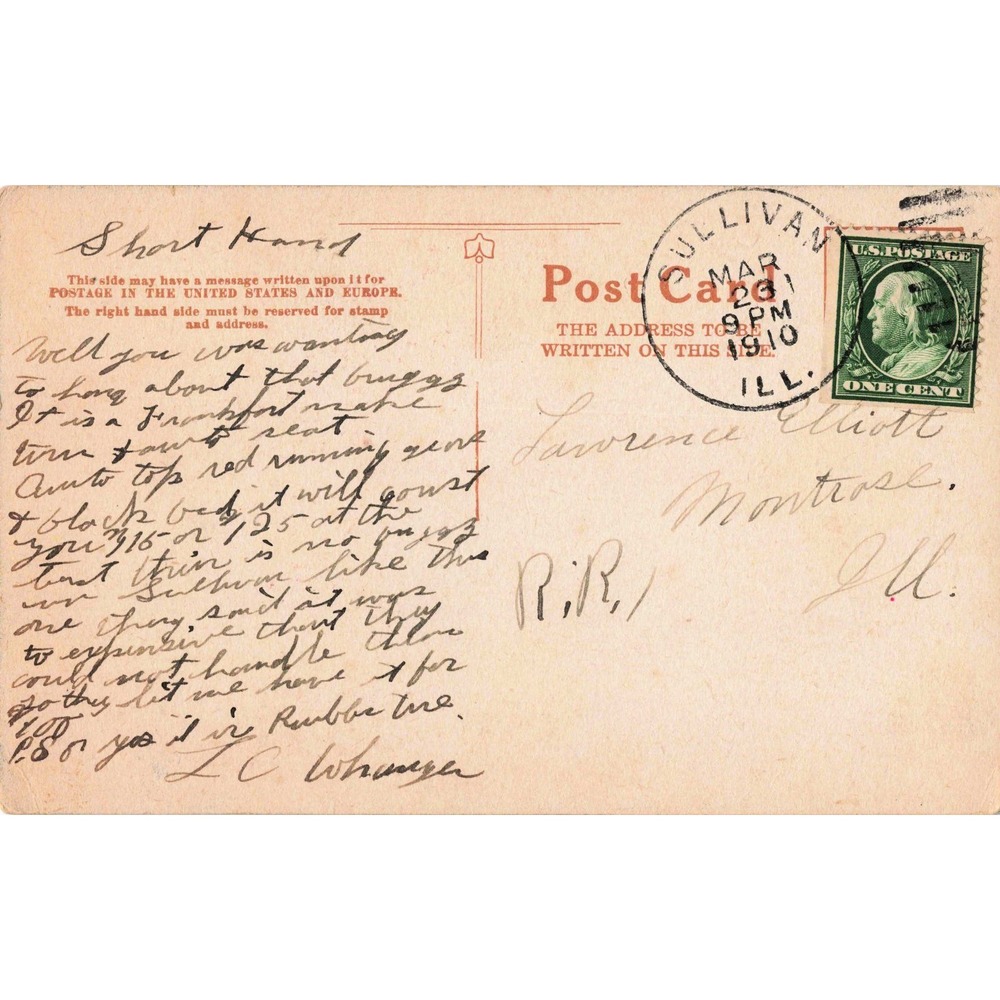 Short Hand
This side may have a message written upon it for
POSTAGE IN THE UNITED STATES AND EUROPE.
The right hand side must be reserved for stamp
and address.
Well you was wanting
to about that buggy
It is a Frankfort make
auto seat
Auto top red running gears
& black bed it will coust
you 115 or 125 at the
is no buggy
Sullivan like this
one they said it was
to expensive that they
could not handle them
so they let me have it for
100
P.S. O yes it is Rubber tire.
L C Whanger
Post Card
THE ADDRESS TO BE
WRITTEN ON THIS SIDE.
SULLIVAN
MAR
23
9 PM
1910
ILL.
U.S. POSTAGE
ONE CENT
Lawrence Elliott
Montrose.
Ill.
R.R. 1